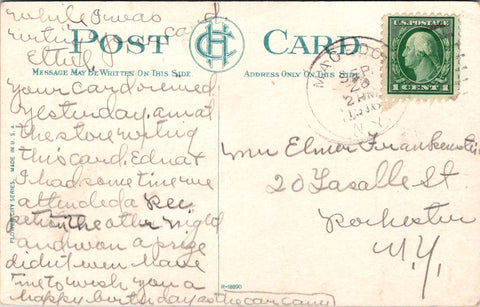 while I was
writing your card
Ethel
POST CARD
MESSAGE MAY BE WRITTEN ON THIS SIDE.
ADDRESS ONLY ON THIS SIDE.
CH
U.S. POSTAGE
1 CENT 1
MACEDON
SEP
28
2 PM
N.Y.
your card received
yesterday. am at
the store writing
this card, Edna &
I had some time we
attended a Rec
eption the other night
and won a prize
didn't even have
time to wish you a
happy birthday as the car came
Mr Elmer Frankenstein
20 Lasalle St
Rochester
N.Y.
FLOWER CITY SERIES. MADE IN U.S.A.